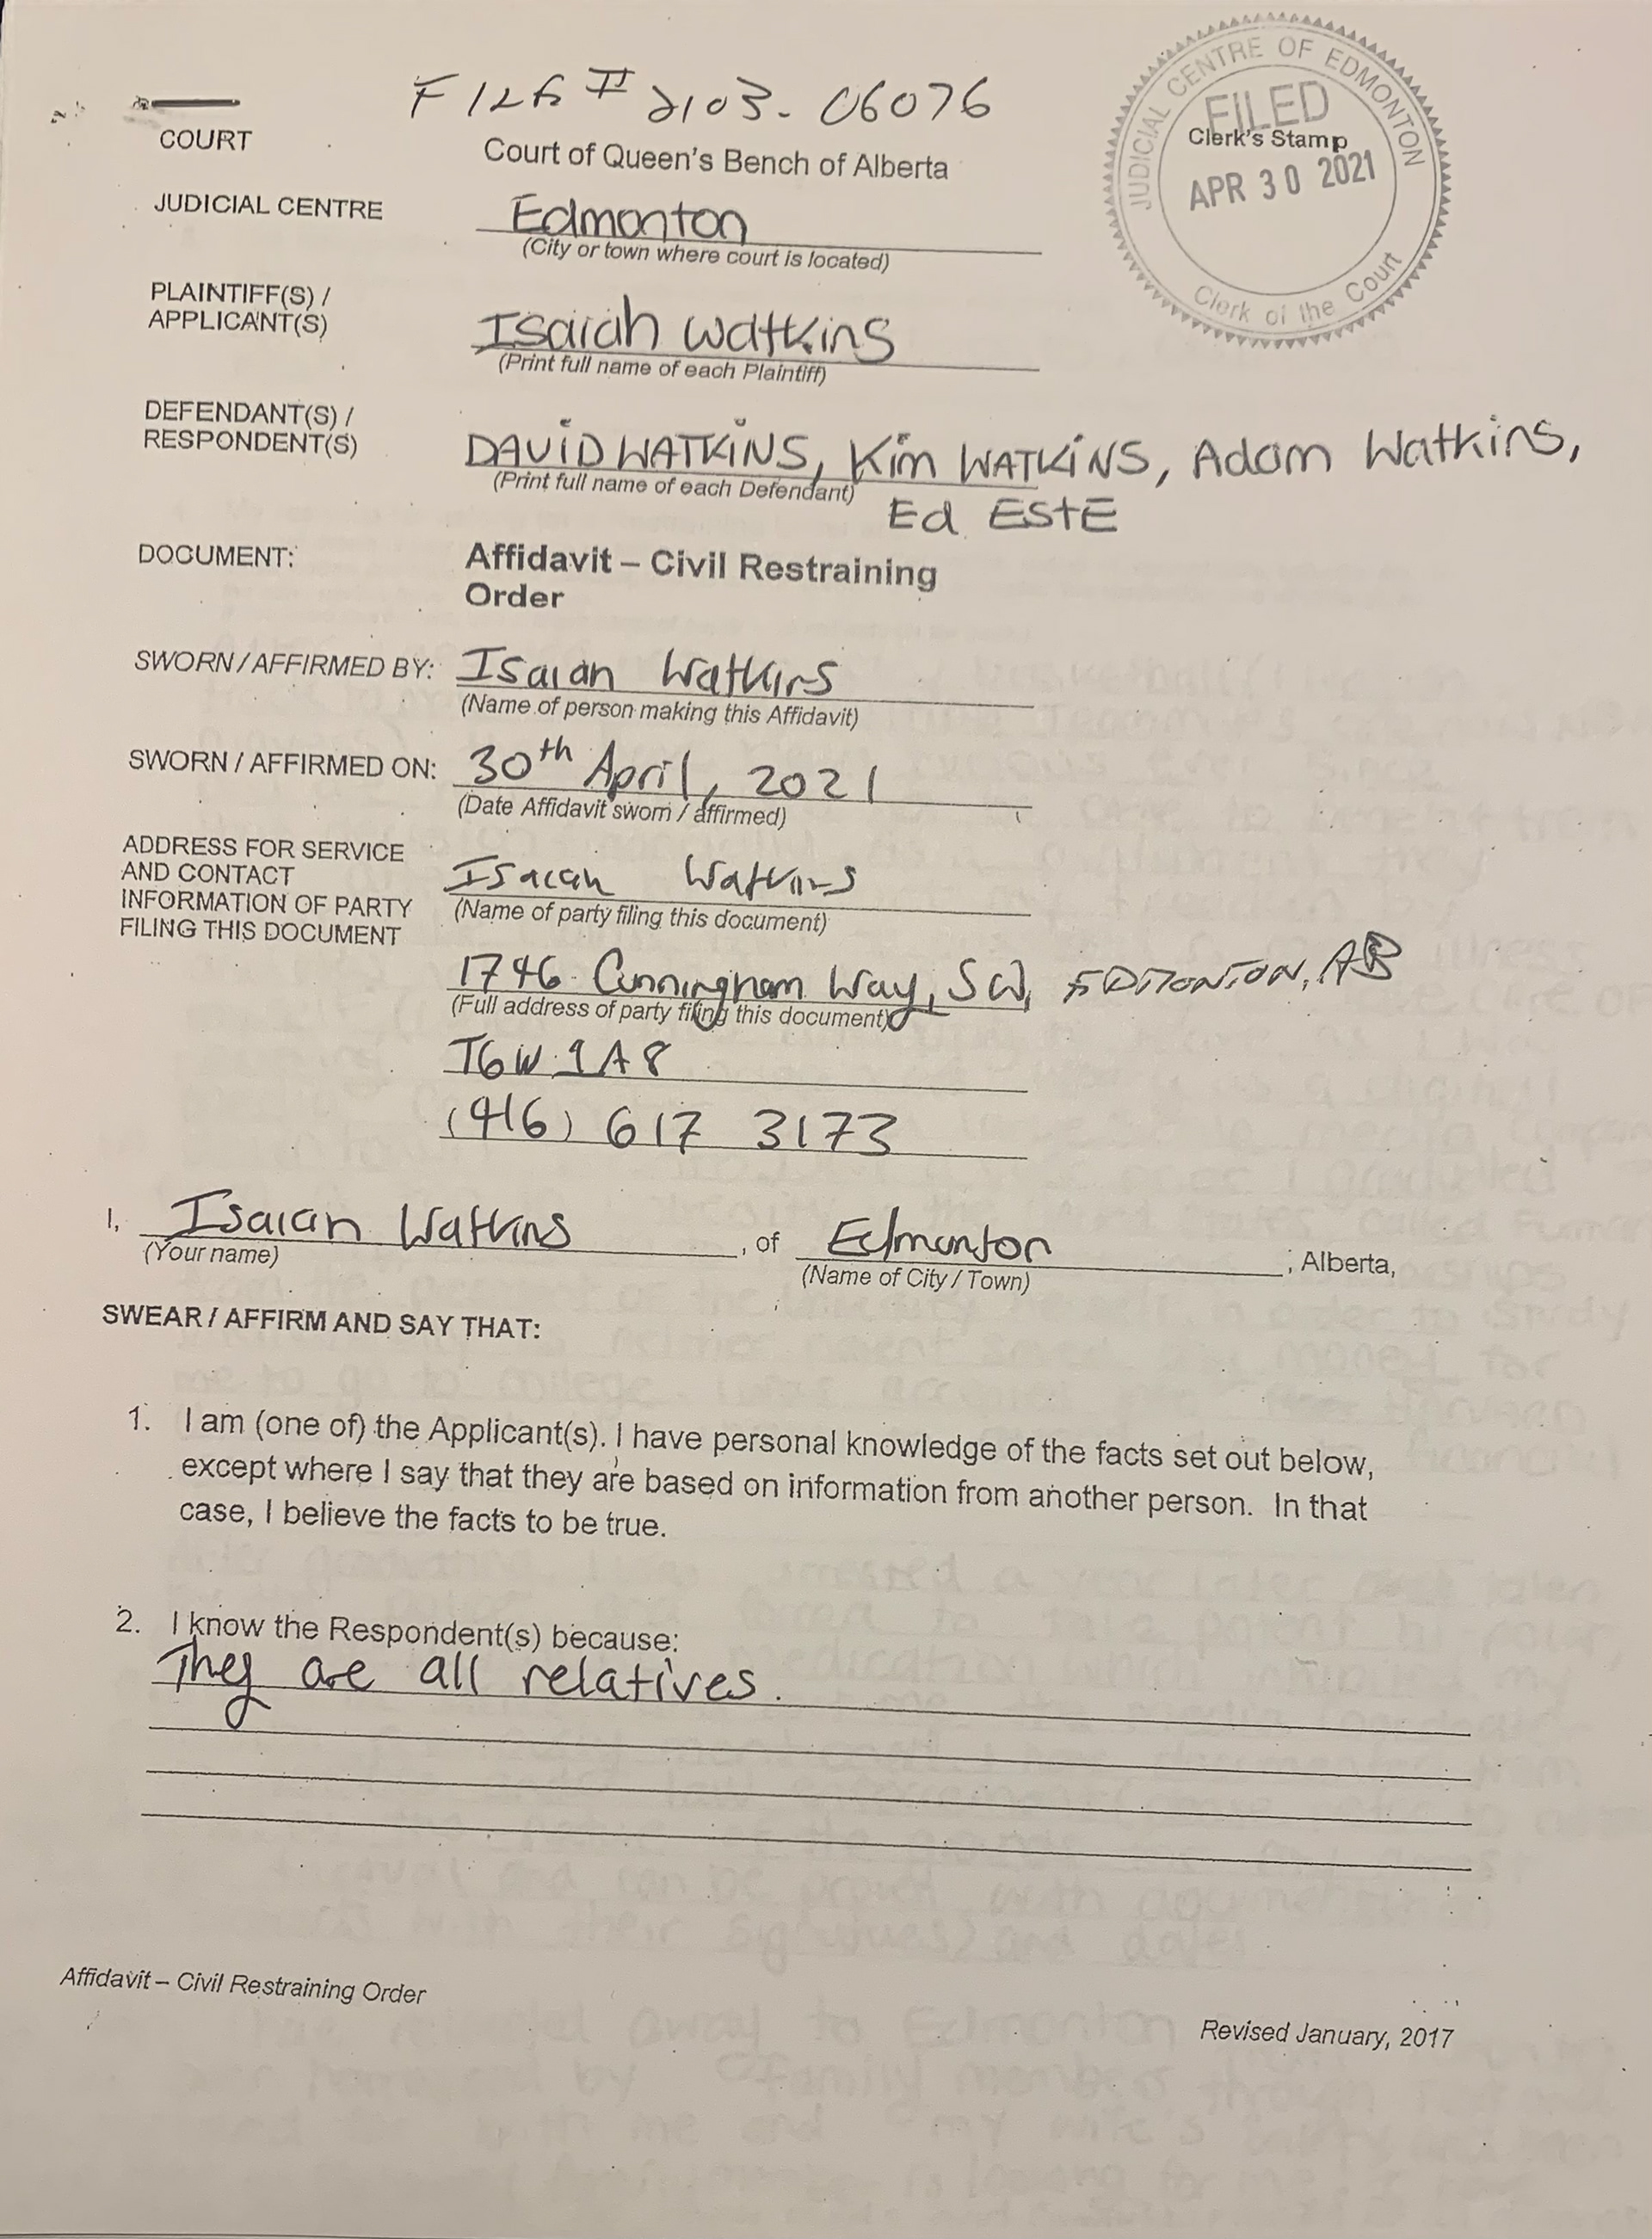 FILE # 2103-06076
COURT
Court of Queen's Bench of Alberta
JUDICIAL CENTRE OF EDMONTON
FILED
Clerk's Stamp
APR 30 2021
Clerk of the Court
JUDICIAL CENTRE
Edmonton
(City or town where court is located)
PLAINTIFF(S) /
APPLICANT(S)
Isaiah Watkins
(Print full name of each Plaintiff)
DEFENDANT(S) /
RESPONDENT(S)
DAVID WATKINS, Kim WATKINS, Adam Watkins,
(Print full name of each Defendant)
Ed EstE
DOCUMENT:
Affidavit – Civil Restraining
Order
SWORN / AFFIRMED BY:
Isaiah Watkins
(Name of person making this Affidavit)
SWORN / AFFIRMED ON:
30th April, 2021
(Date Affidavit sworn / affirmed)
ADDRESS FOR SERVICE
AND CONTACT
INFORMATION OF PARTY
FILING THIS DOCUMENT
Isaiah Watkins
(Name of party filing this document)
1746 Cunningham Way, SW, EDMONTON, AB
(Full address of party filing this document)
T6W 1A8
(416) 617 3173
I, Isaiah Watkins, of Edmonton, Alberta,
(Your name) (Name of City / Town)
SWEAR / AFFIRM AND SAY THAT:
1. I am (one of) the Applicant(s). I have personal knowledge of the facts set out below,
except where I say that they are based on information from another person. In that
case, I believe the facts to be true.
2. I know the Respondent(s) because:
They are all relatives.
Affidavit – Civil Restraining Order
Revised January, 2017